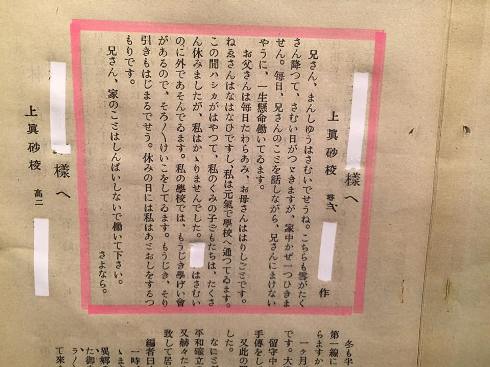 様へ
上眞砂校 尋六 作
兄さん、まんしゆうはさむいでせうね。こちらも雪がたく
さん降つて、さむい日がつゞきますが、家中かぜ一つひきま
せん。毎日、兄さんのことを話しながら、兄さんにまけない
やうに、一生懸命働いてゐます。
お父さんは毎日たわらあみ、お母さんははりしごとです。
ねゑさんはなはなひですし、私は元氣で學校へ通つてゐます。
この間ハシカがはやつて、私のくみの子どもたちは、たくさ
ん休みましたが、私はかゝりませんでした。 はさむい
のに外であそんでゐます。私の學校では、もうじき學げい會
があるので、そろ〳〵けいこをしてゐます。もうじき、そり
引きもはじまるでせう。休みの日には私はあとおしをするつ
もりです。
兄さん、家のことはしんぱいしないで働いて下さい。
さよなら。
様へ
上眞砂校 高二
冬も半
第一線に
らますか
一ヶ月
です。大
留守中
手傳をし
又此の
した。
なにと
平和確立
又赫々た
致して居
編者曰
一時
異郷
た御
て來